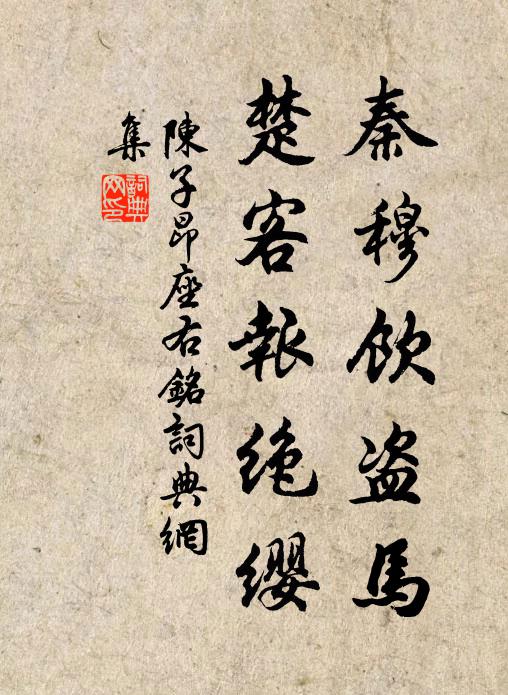 秦穆飲盗馬
楚客報絶纓
陳子昂座右銘詞典網
集
詞典网印